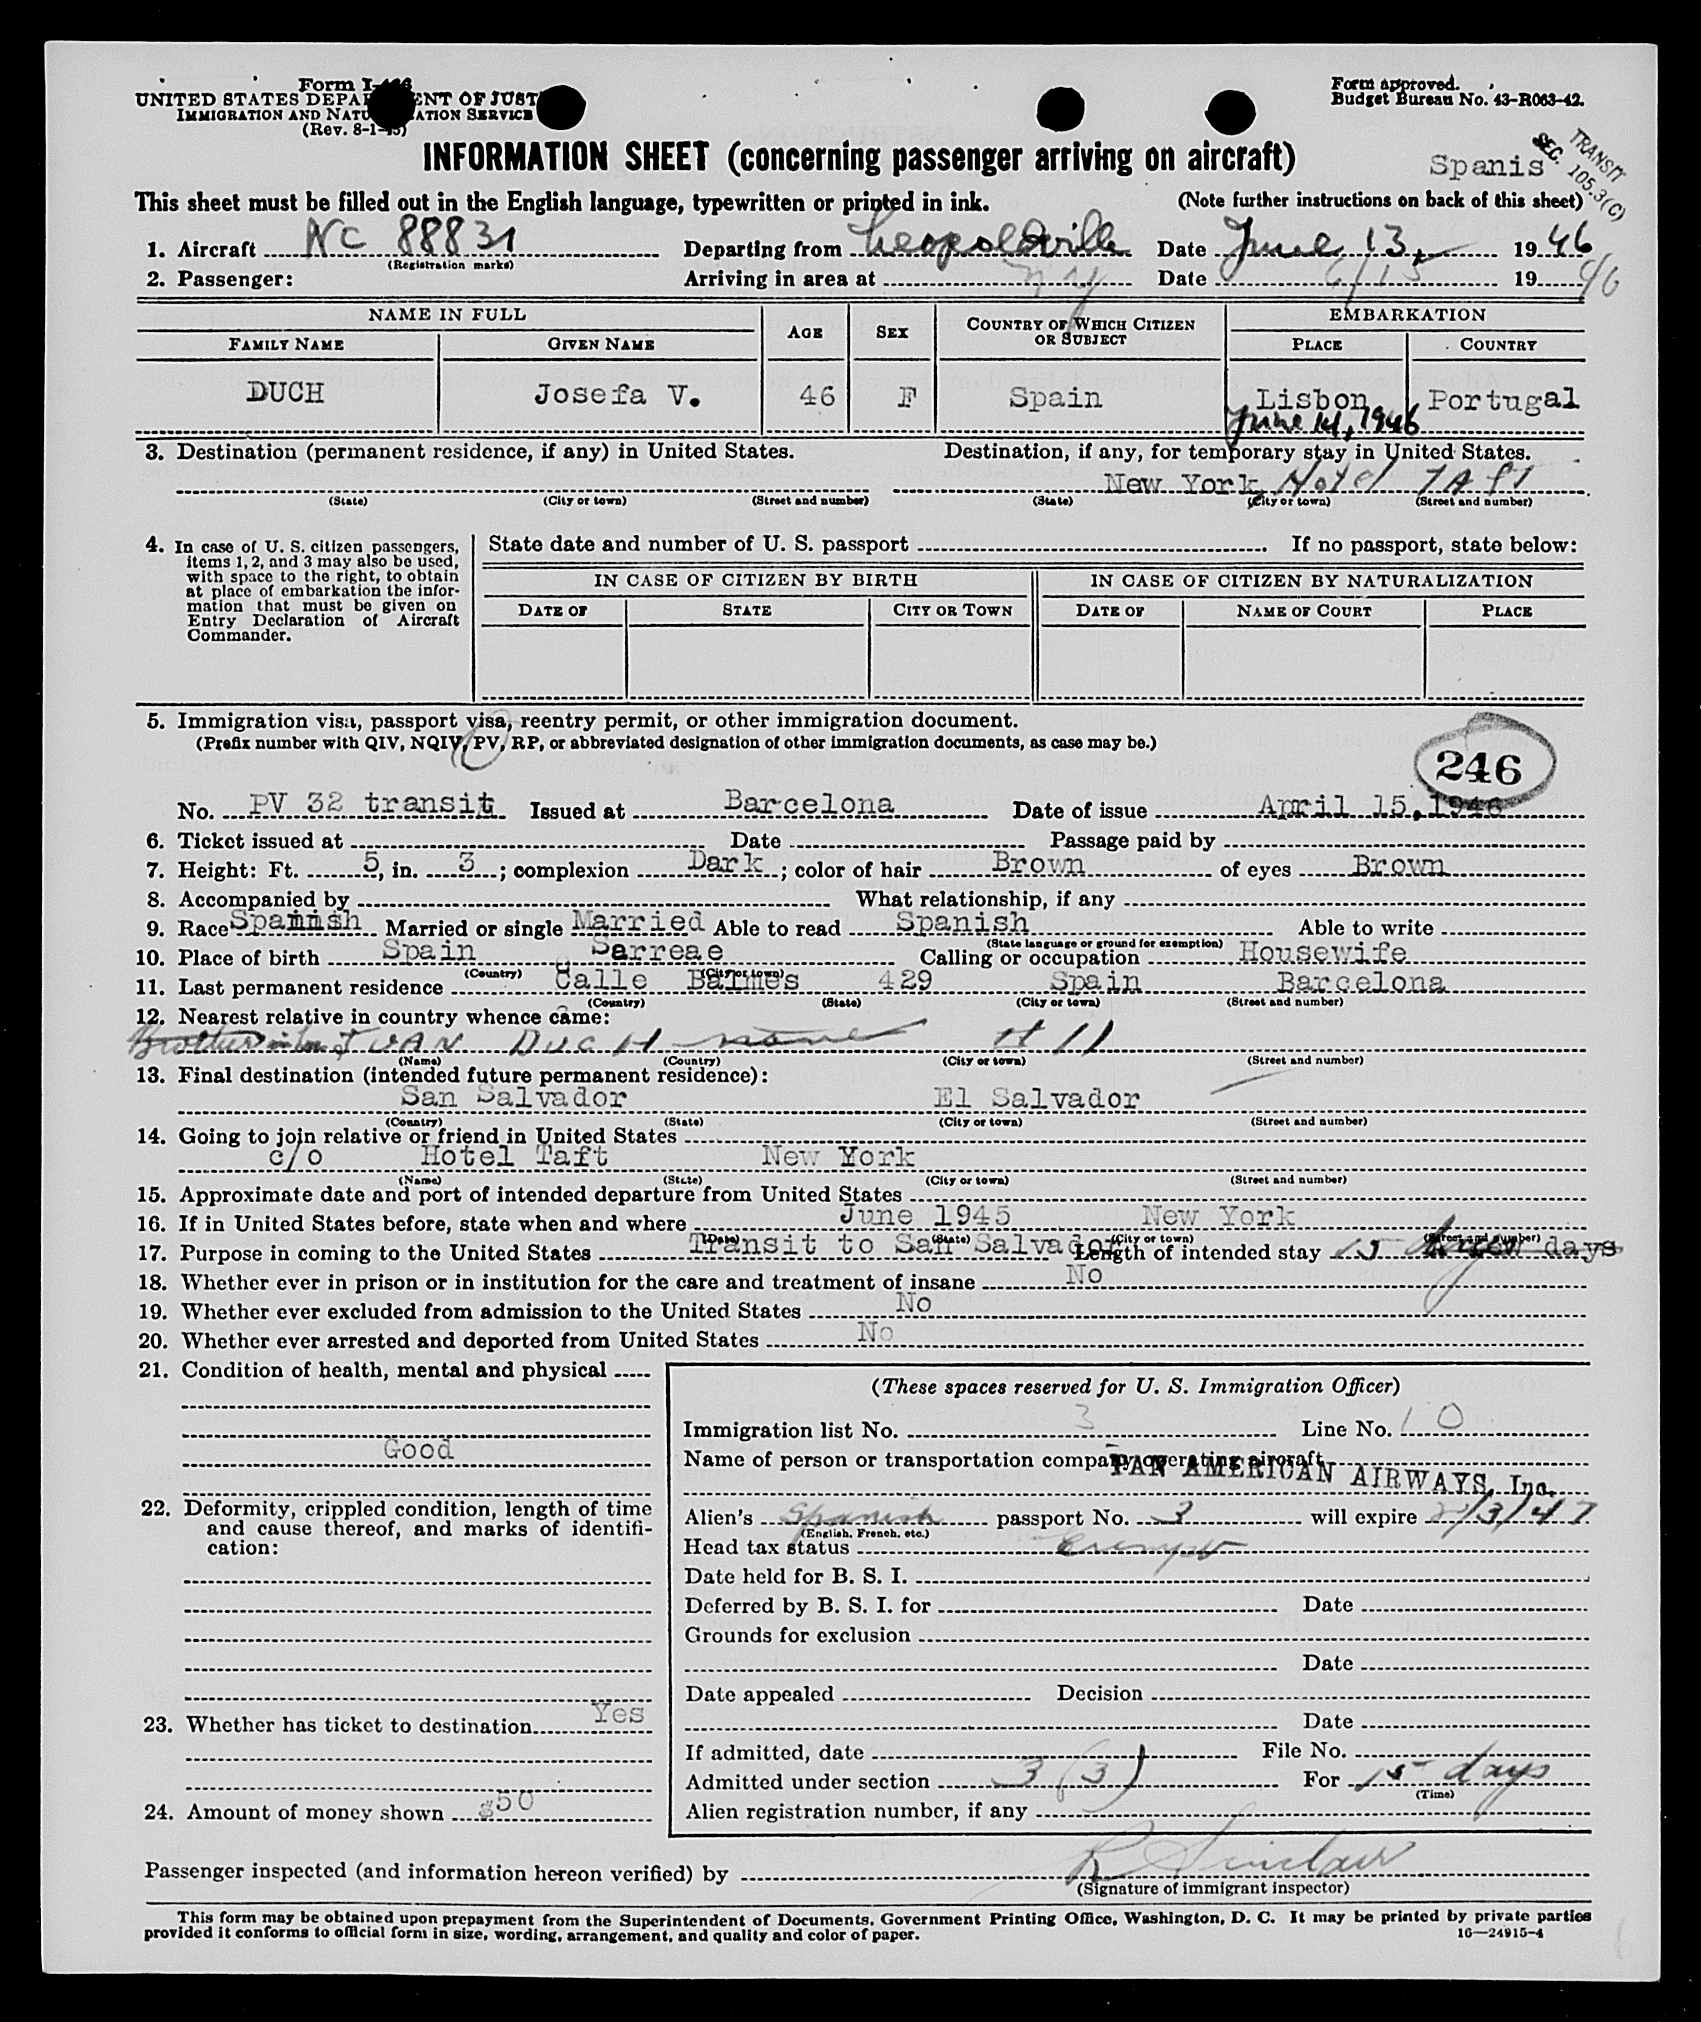 Form I-466
UNITED STATES DEPARTMENT OF JUSTICE
IMMIGRATION AND NATURALIZATION SERVICE
(Rev. 8-1-45)
Form approved.
Budget Bureau No. 43-R063-42.
INFORMATION SHEET (concerning passenger arriving on aircraft)
Spanis
TRANSIT
SEC. 105.3(C)
This sheet must be filled out in the English language, typewritten or printed in ink. (Note further instructions on back of this sheet)
1. Aircraft NC 88831 Departing from Leopoldville Date June 13, 1946
(Registration marks)
2. Passenger: Arriving in area at NY Date 6/15 1946
NAME IN FULL AGE SEX COUNTRY OF WHICH CITIZEN OR SUBJECT EMBARKATION
FAMILY NAME GIVEN NAME PLACE COUNTRY
DUCH Josefa V. 46 F Spain Lisbon Portugal
June 14, 1946
3. Destination (permanent residence, if any) in United States. Destination, if any, for temporary stay in United States.
New York Hotel TAft
(State) (City or town) (Street and number) (State) (City or town) (Street and number)
4. In case of U. S. citizen passengers, items 1, 2, and 3 may also be used, with space to the right, to obtain at place of embarkation the information that must be given on Entry Declaration of Aircraft Commander.
State date and number of U. S. passport If no passport, state below:
IN CASE OF CITIZEN BY BIRTH IN CASE OF CITIZEN BY NATURALIZATION
DATE OF STATE CITY OR TOWN DATE OF NAME OF COURT PLACE
5. Immigration visa, passport visa, reentry permit, or other immigration document.
(Prefix number with QIV, NQIV, PV, RP, or abbreviated designation of other immigration documents, as case may be.)
246
No. PV 32 transit Issued at Barcelona Date of issue April 15, 1946
6. Ticket issued at Date Passage paid by
7. Height: Ft. 5, in. 3; complexion Dark; color of hair Brown of eyes Brown
8. Accompanied by What relationship, if any
9. Race Spanish Married or single Married Able to read Spanish Able to write
(State language or ground for exemption)
10. Place of birth Spain Sarreae Calling or occupation Housewife
(Country) (City or town)
11. Last permanent residence Calle Balmes 429 Spain Barcelona
(Country) (State) (City or town) (Street and number)
12. Nearest relative in country whence came:
Brother in law JUAN DUCH none
(Name) (Country) (City or town) (Street and number)
13. Final destination (intended future permanent residence):
San Salvador El Salvador
(Country) (State) (City or town) (Street and number)
14. Going to join relative or friend in United States
c/o Hotel Taft New York
(Name) (State) (City or town) (Street and number)
15. Approximate date and port of intended departure from United States
16. If in United States before, state when and where June 1945 New York
(Date) (State) (City or town) (Street and number)
17. Purpose in coming to the United States Transit to San Salvador Length of intended stay 15 days
18. Whether ever in prison or in institution for the care and treatment of insane No
19. Whether ever excluded from admission to the United States No
20. Whether ever arrested and deported from United States No
21. Condition of health, mental and physical
Good
22. Deformity, crippled condition, length of time and cause thereof, and marks of identification:
23. Whether has ticket to destination Yes
24. Amount of money shown $50
(These spaces reserved for U. S. Immigration Officer)
Immigration list No. 3 Line No. 10
Name of person or transportation company operating aircraft
PAN AMERICAN AIRWAYS, Inc.
Alien's Spanish passport No. 3 will expire 2/3/47
(English, French, etc.)
Head tax status Exempt
Date held for B. S. I.
Deferred by B. S. I. for Date
Grounds for exclusion
Date
Date appealed Decision
Date
If admitted, date File No.
Admitted under section 3 (3) For 15 days
(Time)
Alien registration number, if any
Passenger inspected (and information hereon verified) by R Sinclair
(Signature of immigrant inspector)
This form may be obtained upon prepayment from the Superintendent of Documents, Government Printing Office, Washington, D. C. It may be printed by private parties
provided it conforms to official form in size, wording, arrangement, and quality and color of paper.
16—24915-4